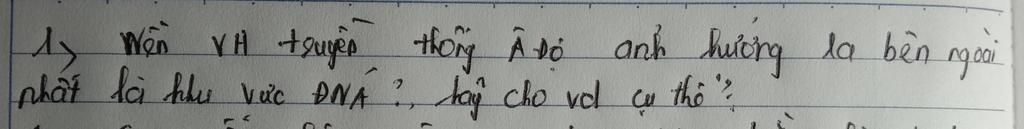 1> Nền VH truyền thống Ấ Độ ảnh hưởng ra bên ngoài
nhất là khu vực ĐNÁ?, hãy cho vd cụ thể?